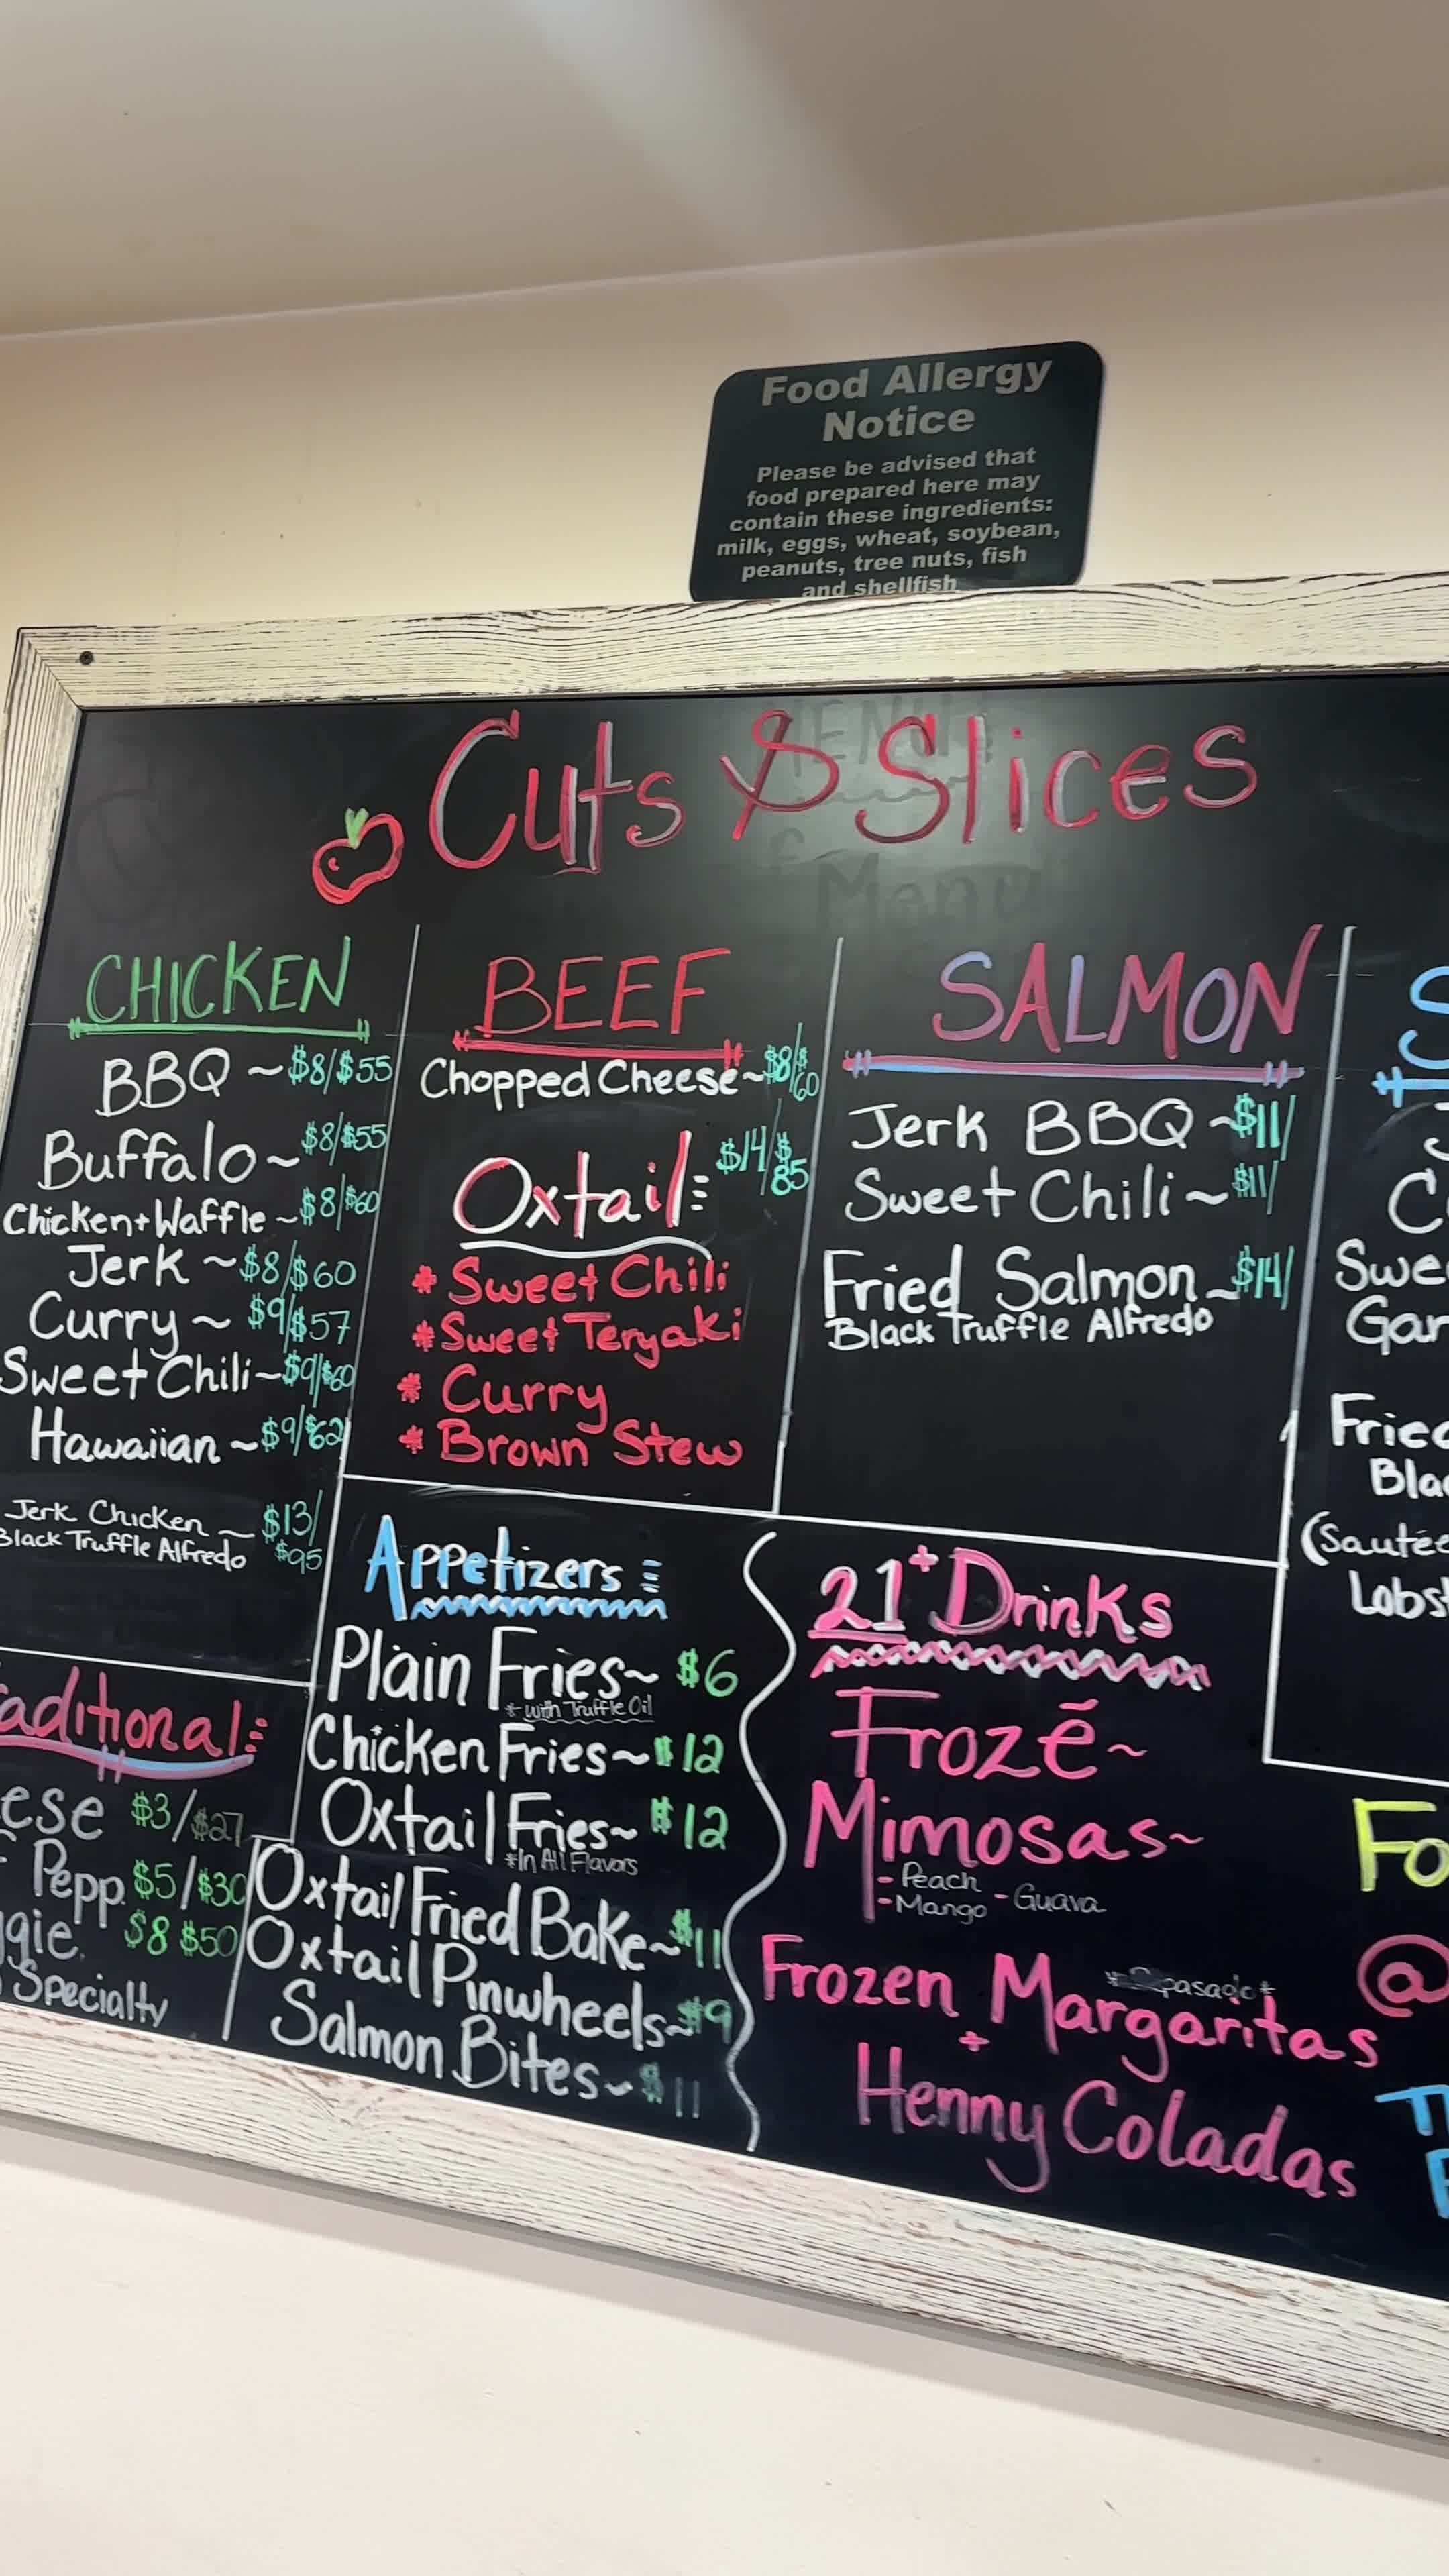 Food Allergy
Notice
Please be advised that
food prepared here may
contain these ingredients:
milk, eggs, wheat, soybean,
peanuts, tree nuts, fish
and shellfish
Cuts & Slices
CHICKEN
BBQ ~ $8/$55
Buffalo ~ $8/$55
Chicken+Waffle ~ $8/$60
Jerk ~ $8/$60
Curry ~ $9/$57
Sweet Chili ~ $9/$60
Hawaiian ~ $9/$62
Jerk Chicken ~ $13/
Black Truffle Alfredo $95
BEEF
Chopped Cheese ~ $8/$60
Oxtail: $14/$85
* Sweet Chili
* Sweet Teryaki
* Curry
* Brown Stew
SALMON
Jerk BBQ ~ $11/
Sweet Chili ~ $11/
Fried Salmon ~ $14/
Black Truffle Alfredo
Swe
Gar
Fried
Bla
(Sauté
Lobs
aditional:
ese $3/$27
Pepp. $5/$30
ggie. $8 $50
Specialty
Appetizers
Plain Fries ~ $6
* with Truffle Oil
Chicken Fries ~ $12
Oxtail Fries ~ $12
*In All Flavors
Oxtail Fried Bake ~ $11
Oxtail Pinwheels ~ $9
Salmon Bites ~ $11
21+ Drinks
Frozē ~
Mimosas ~
- Peach
- Mango - Guava
Frozen Margaritas
+
Henny Coladas
Fo
@